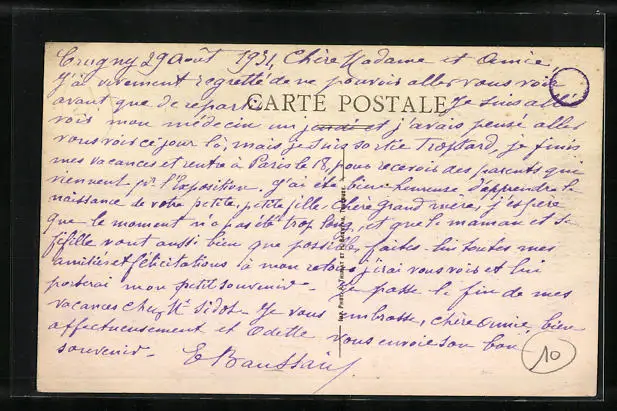 29 Août 1931, Chère Madame et Amie,
J'ai vivement regretté de ne pouvoir aller vous voir
avant que de repartir. Je suis allé
CARTE POSTALE
voir mon médecin un jeudi et j'avais pensé aller
vous voir ce jour là, mais je suis sortie trop tard, je finis
mes vacances et rentre à Paris le 18, pour recevoir des parents qui
viennent pr l'Exposition. J'ai été bien heureuse d'apprendre la
naissance de votre petite, petite fille. Chère grand'mère, j'espère
que le moment n'a pas été trop long, et que la maman et sa
fifille vont aussi bien que possible, faites-lui toutes mes
amitiés et félicitations à mon retour j'irai vous voir et lui
porterai mon petit souvenir. Je passe la fin de mes
vacances chez Je vous embrasse, chère Amie, bien
affectueusement et Odette vous envoie son bon
souvenir.
10